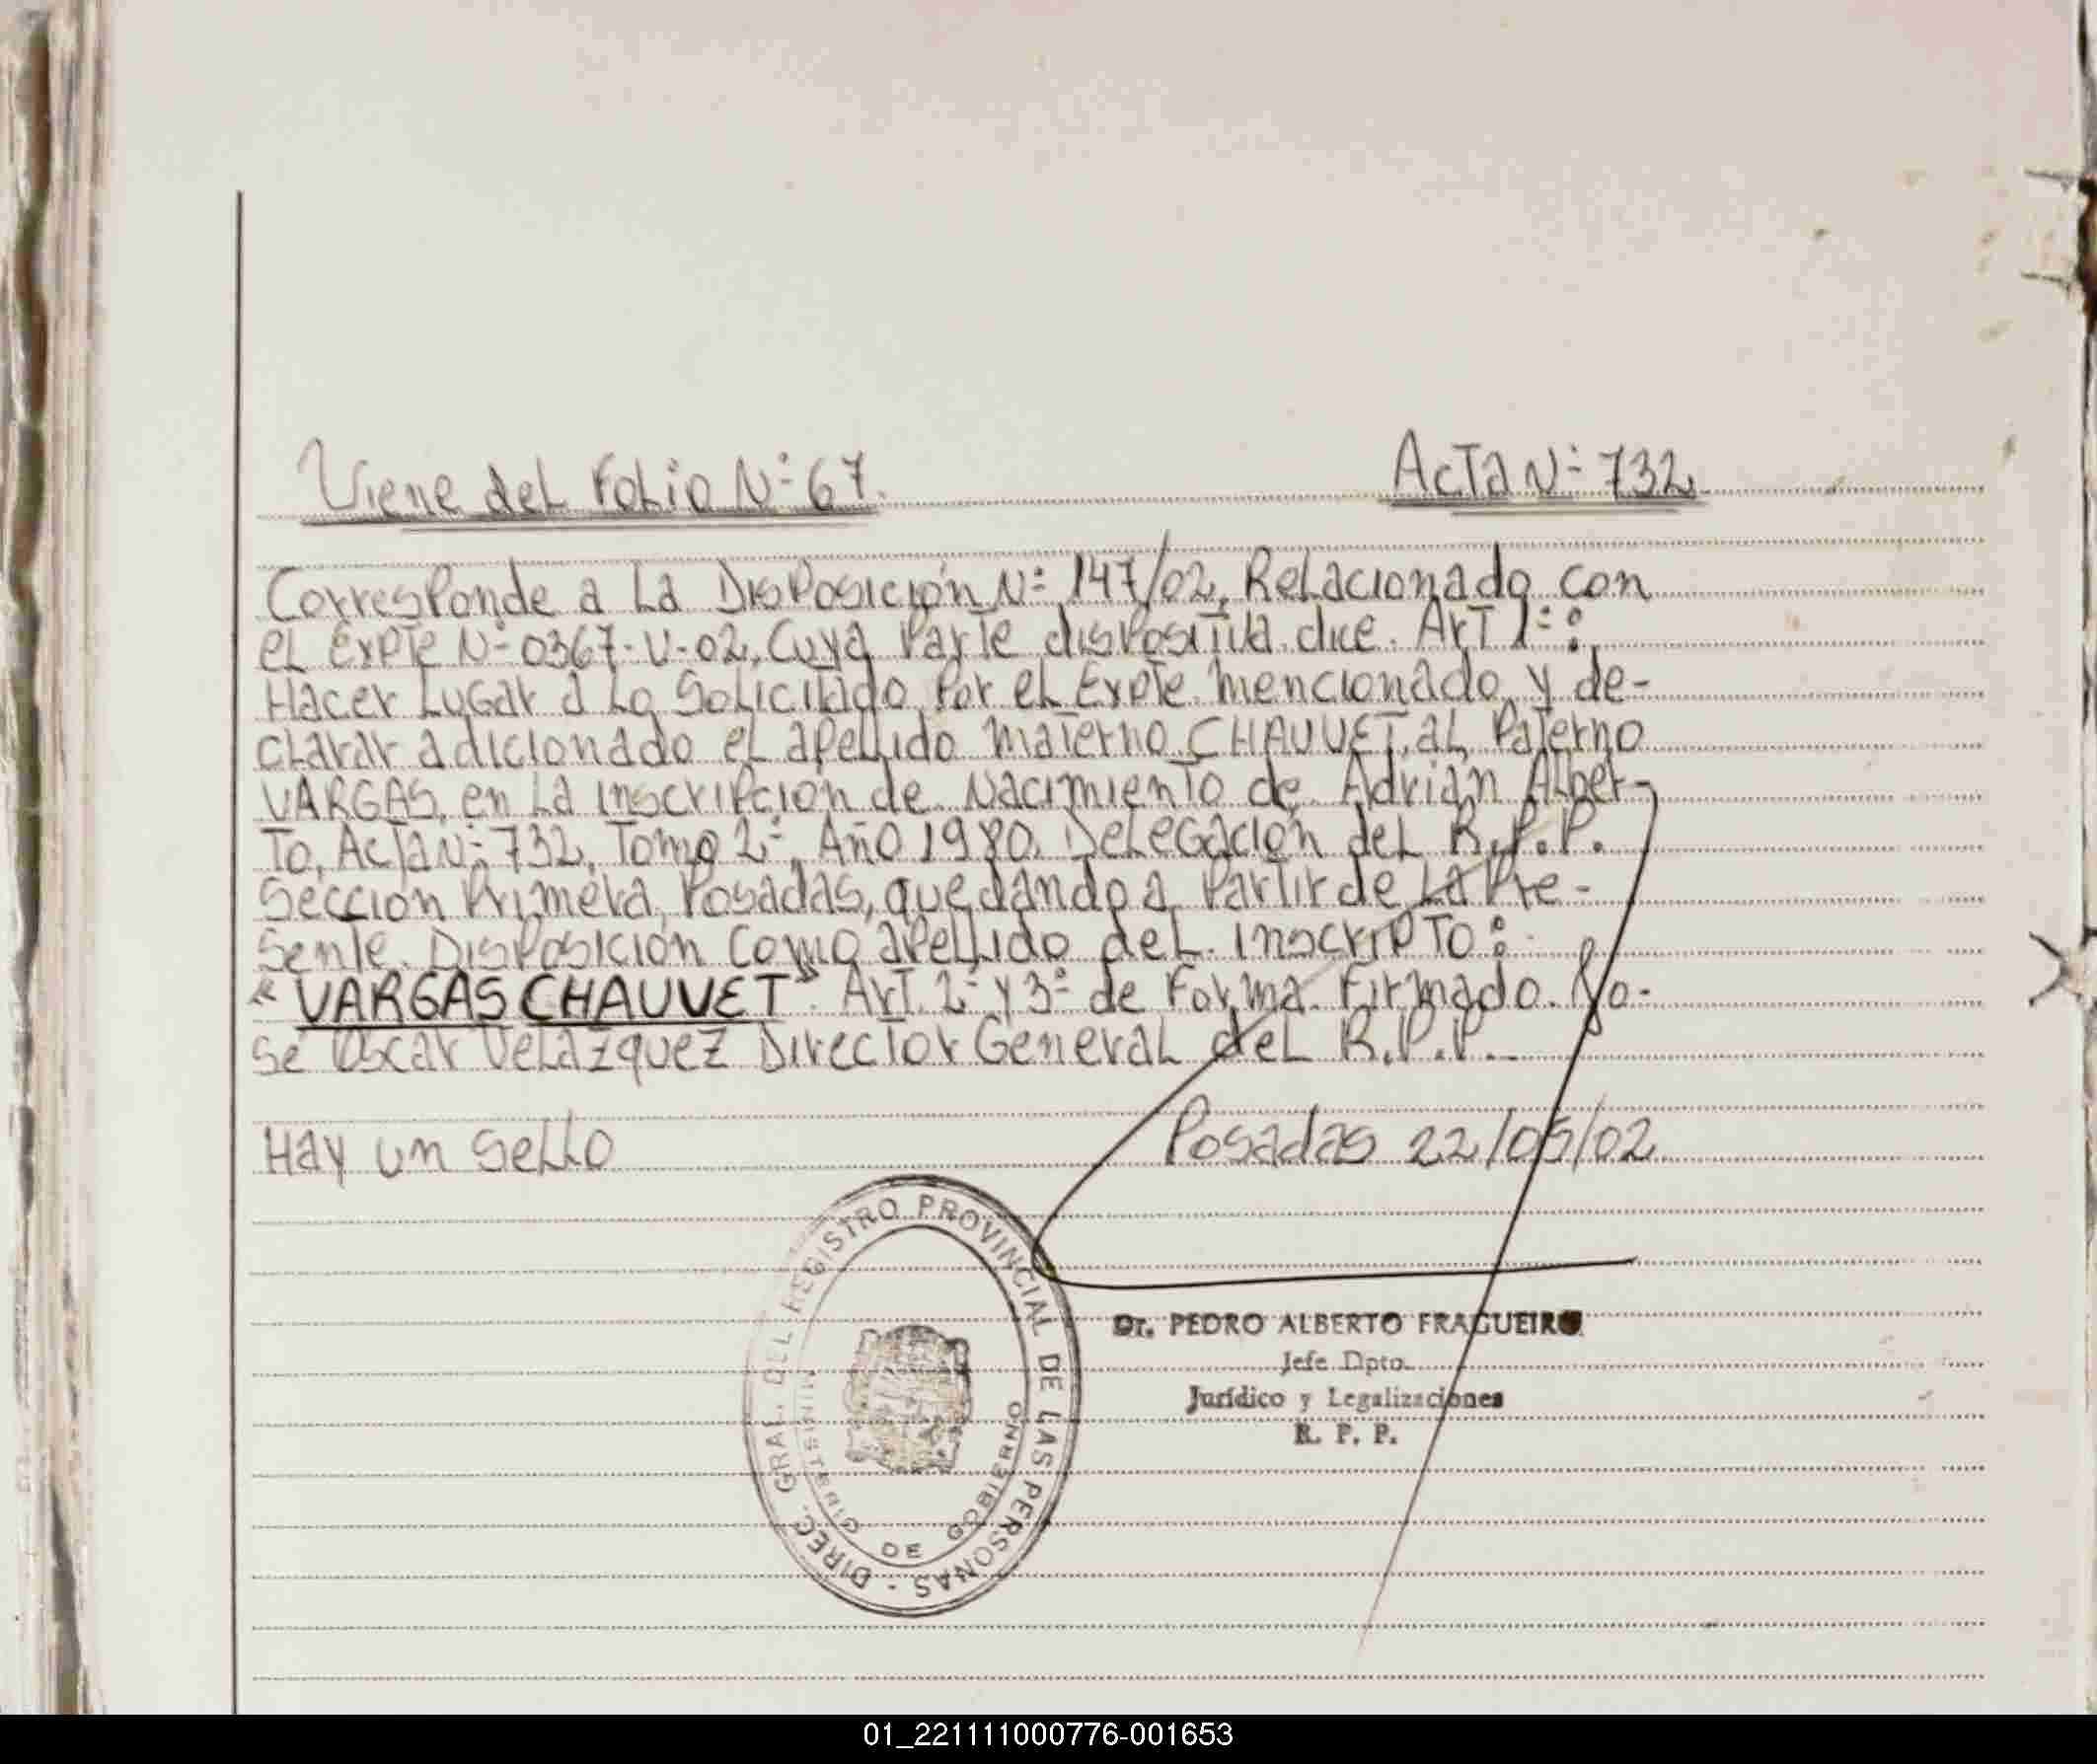 Viene del Folio N° 67.
Acta N° 732
Corresponde a la Disposición N° 147/02, Relacionado con
el Expte N° 0367-V-02, Cuya Parte dispositiva dice. Art 1°:
Hacer Lugar a Lo Solicitado Por el Expte. mencionado y de-
clarar adicionado el apellido materno CHAUVET, al Paterno
VARGAS, en La inscripcion de Nacimiento de Adrián Alber-
to, Acta N° 732, Tomo 2°, Año 1980. Delegación del R.P.P.
Sección Primera, Posadas, quedando a Partir de La Pre-
sente Disposición Como apellido del inscripto:
"VARGAS CHAUVET". Art. 2° y 3° de Forma. Firmado. Jo-
sé Oscar Velazquez Director General del R.P.P.
Hay un Sello
Posadas 22/05/02
DIREC. GRAL. DEL REGISTRO PROVINCIAL DE LAS PERSONAS -
MINISTERIO DE GOBIERNO
Dr. PEDRO ALBERTO FRAGUEIRO
Jefe Dpto.
Jurídico y Legalizaciones
R. P. P.
01_221111000776-001653